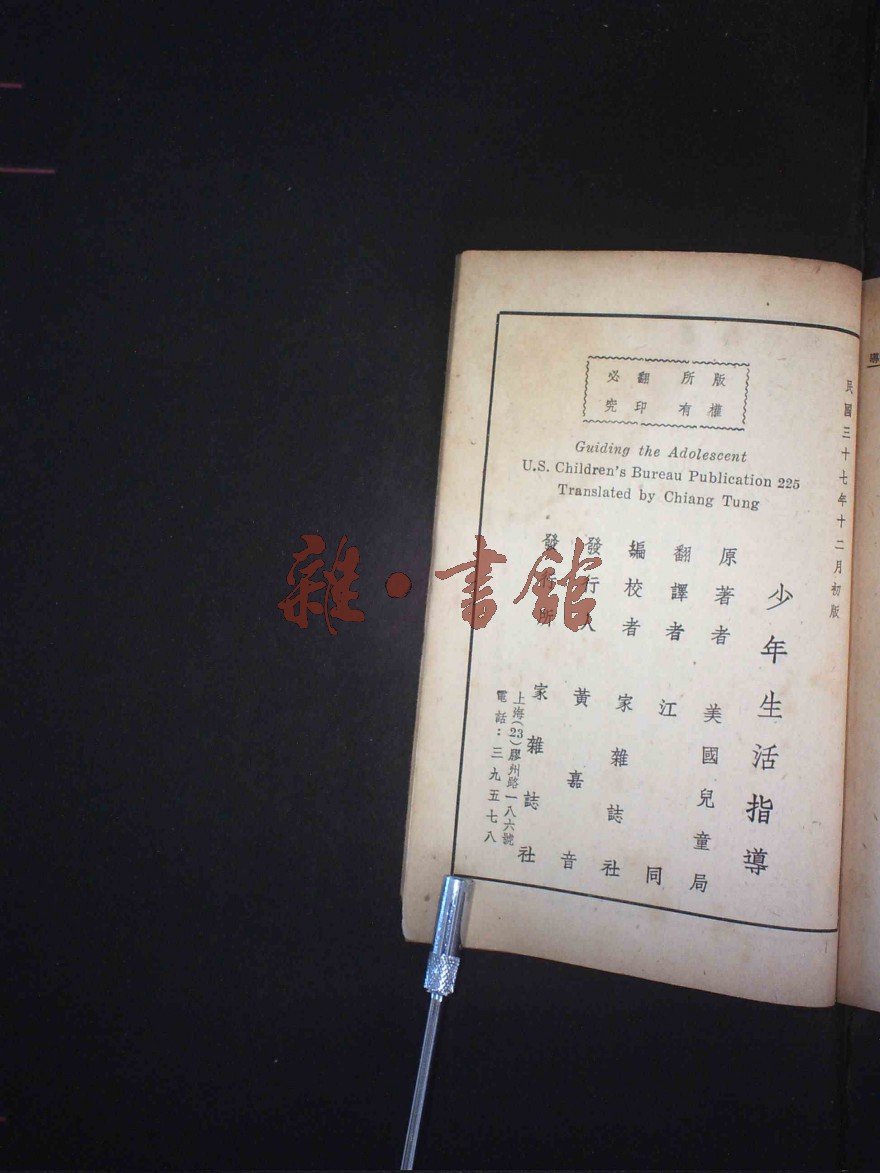 民國三十七年十二月初版
版權所有
翻印必究
Guiding the Adolescent
U.S. Children's Bureau Publication 225
Translated by Chiang Tung
少年生活指導
原著者 美國兒童局
翻譯者 江同
編校者 家雜誌社
發行人 黃嘉音
發行所 家雜誌社
上海(23)膠州路一八六號
電話：三九五七八
雜·書館
導